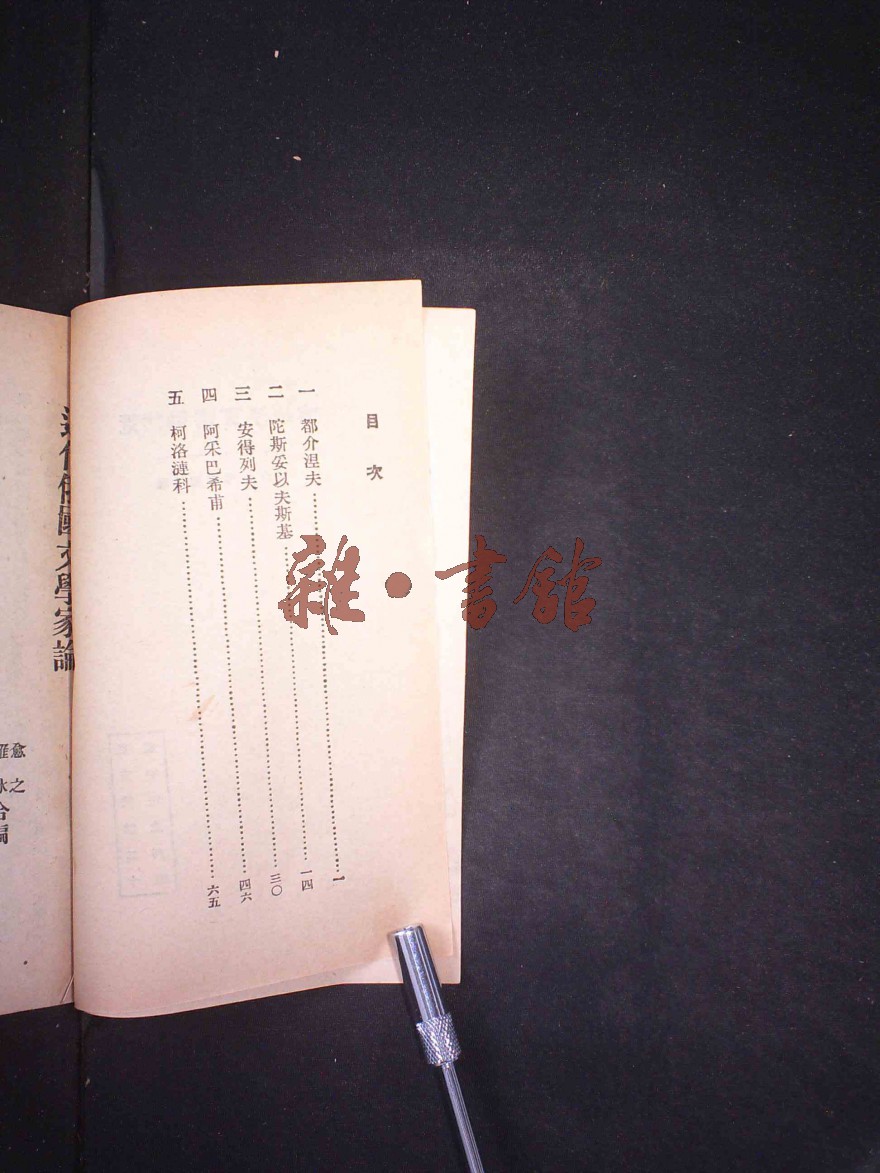 目次
一 都介涅夫……一
二 陀斯妥以夫斯基……一四
三 安得列夫……三〇
四 阿采巴希甫……四六
五 柯洛漣科……六五
國文學家論
愈之
合編
雜·書館